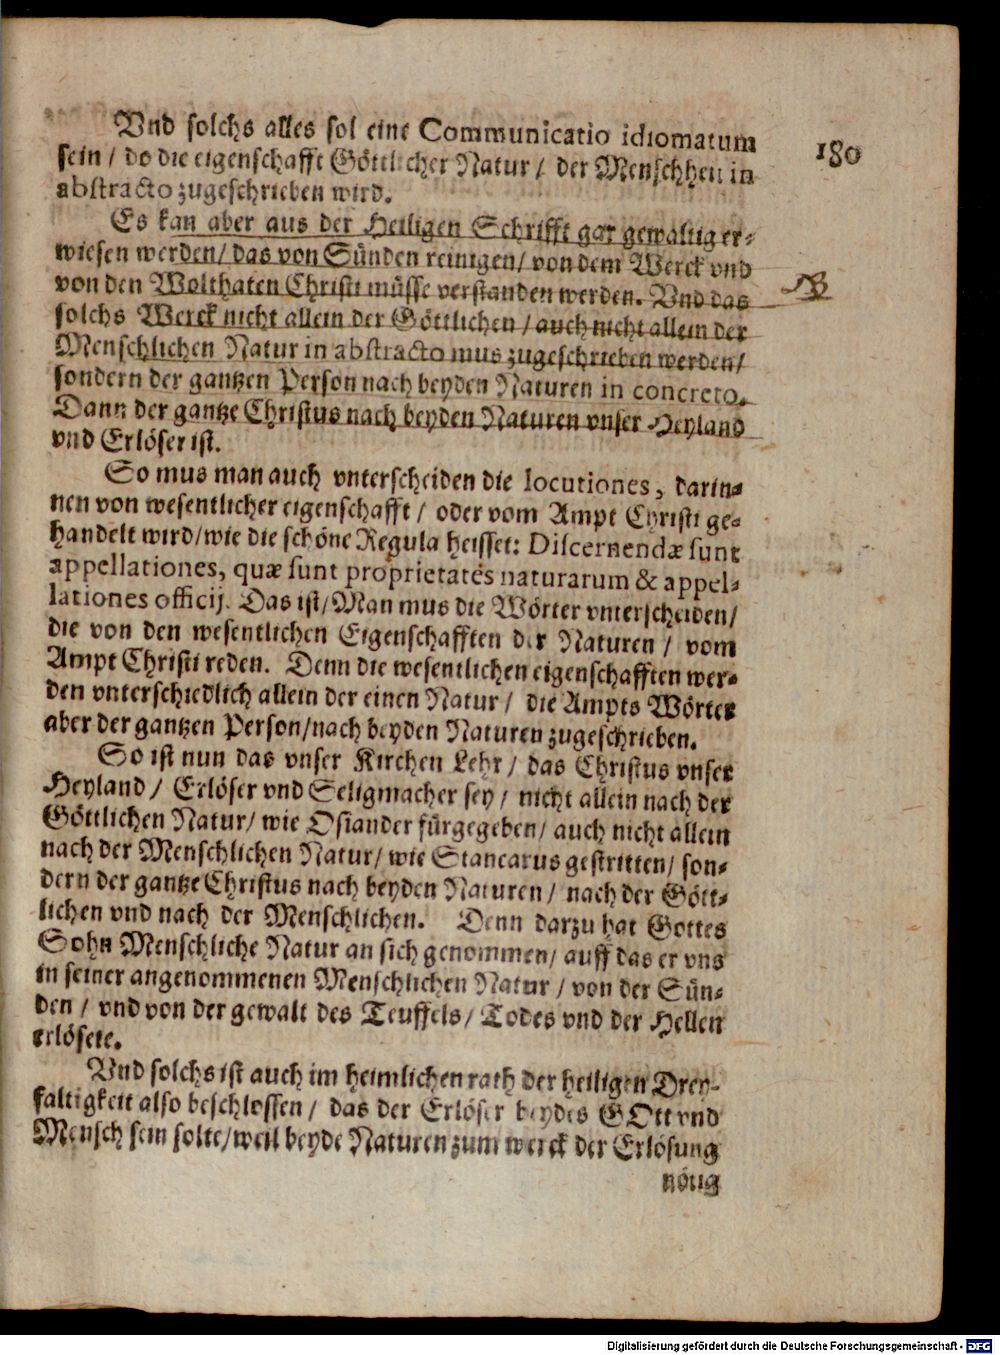 Vnd solchs alles sol eine Communicatio idiomatum
sein / do die eigenschafft Göttlicher Natur / der Menschheit in
abstracto zugeschrieben wird.
180
Es kan aber aus der Heiligen Schrifft gar gewaltig er-
wiesen werden / das von Sünden reinigen / von dem Werck vnd
von den Wolthaten Christi müsse verstanden werden. Vnd das
NB
solchs Werck nicht allein der Göttlichen / auch nicht allein der
Menschlichen Natur in abstracto mus zugeschrieben werden /
sondern der gantzen Person nach beyden Naturen in concreto.
Dann der gantze Christus nach beyden Naturen vnser Heyland
vnd Erlöser ist.
So mus man auch vnterscheiden die locutiones, darin-
nen von wesentlicher eigenschafft / oder vom Ampt Christi ge-
handelt wird / wie die schöne Regula heisset: Discernendæ sunt
appellationes, quæ sunt proprietates naturarum & appel-
lationes officij. Das ist / Man mus die Wörter vnterscheiden /
die von den wesentlichen Eigenschafften der Naturen / vom
Ampt Christi reden. Denn die wesentlichen eigenschafften wer-
den vnterschiedlich allein der einen Natur / die Ampts Wörter
aber der gantzen Person / nach beyden Naturen zugeschrieben.
So ist nun das vnser Kirchen Lehr / das Christus vnser
Heyland / Erlöser vnd Seligmacher sey / nicht allein nach der
Göttlichen Natur / wie Osiander fürgegeben / auch nicht allein
nach der Menschlichen Natur / wie Stancarus gestritten / son-
dern der gantze Christus nach beyden Naturen / nach der Gött-
lichen vnd nach der Menschlichen. Denn darzu hat Gottes
Sohn Menschliche Natur an sich genommen / auff das er vns
in seiner angenommenen Menschlichen Natur / von der Sün-
den / vnd von der gewalt des Teuffels / Todes vnd der Hellen
erlösete.
Vnd solchs ist auch im heimlichen rath der heiligen Drey-
faltigkeit also beschlossen / das der Erlöser beydes GOtt vnd
Mensch sein solte / weil beyde Naturen zum werck der Erlösung
nötig
Digitalisierung gefördert durch die Deutsche Forschungsgemeinschaft - DFG